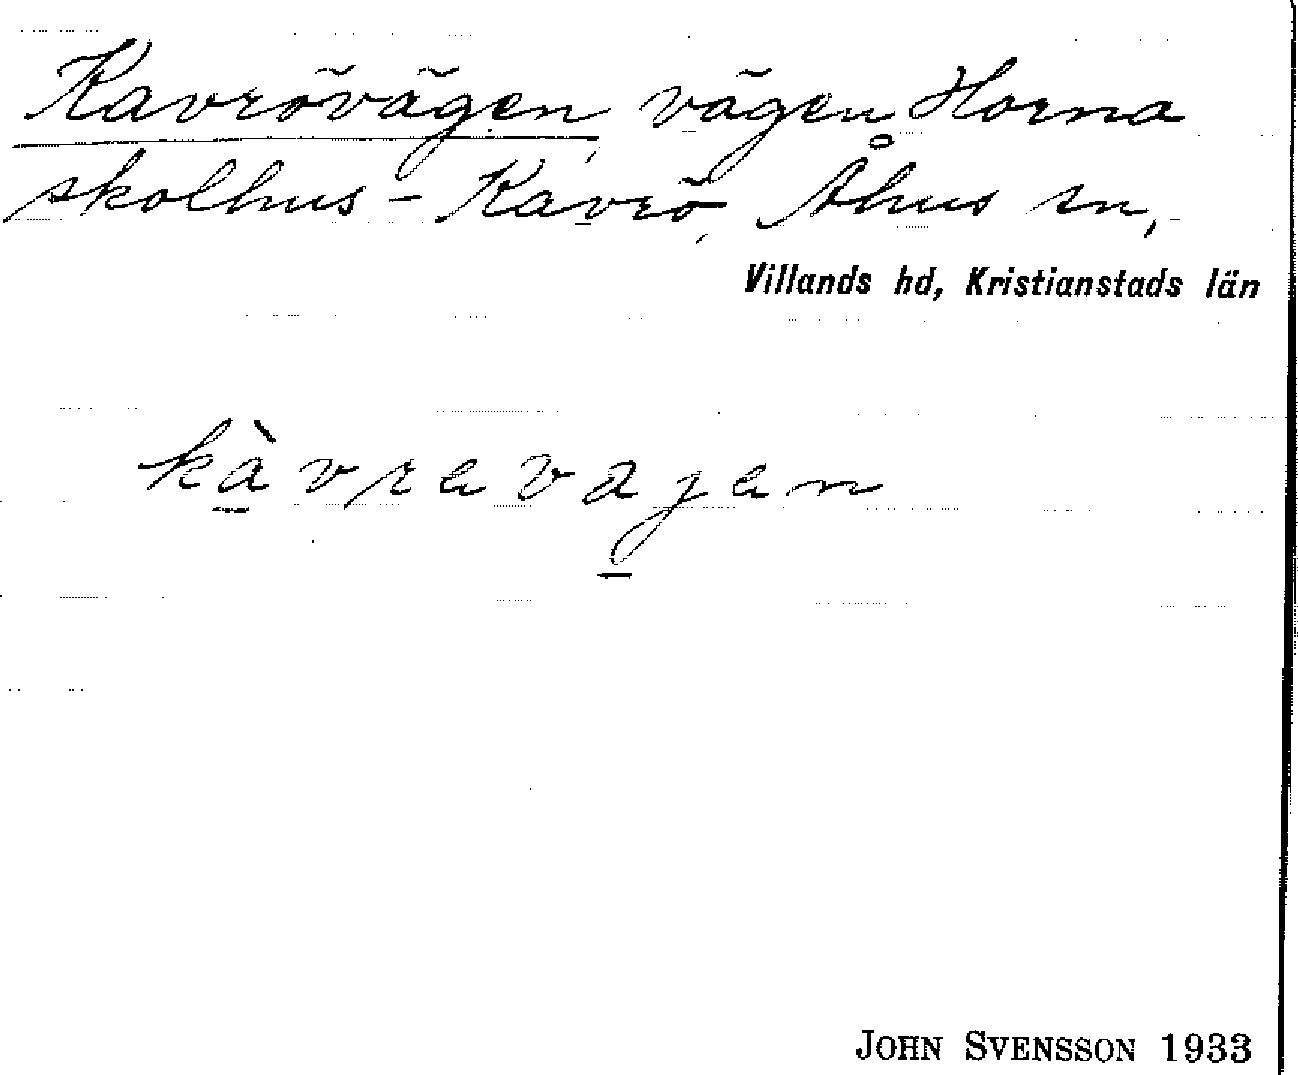 Kavrövägen, vägen Horna
skolhus - Kavrö, Åhus sn,
Villands hd, Kristianstads län
kàvravajan
JOHN SVENSSON 1933